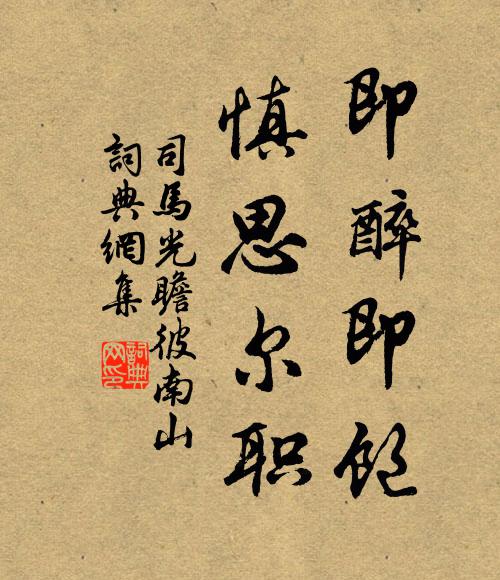 即醉即饱
慎思尔职
司馬光瞻彼南山
詞典網集
詞典网印